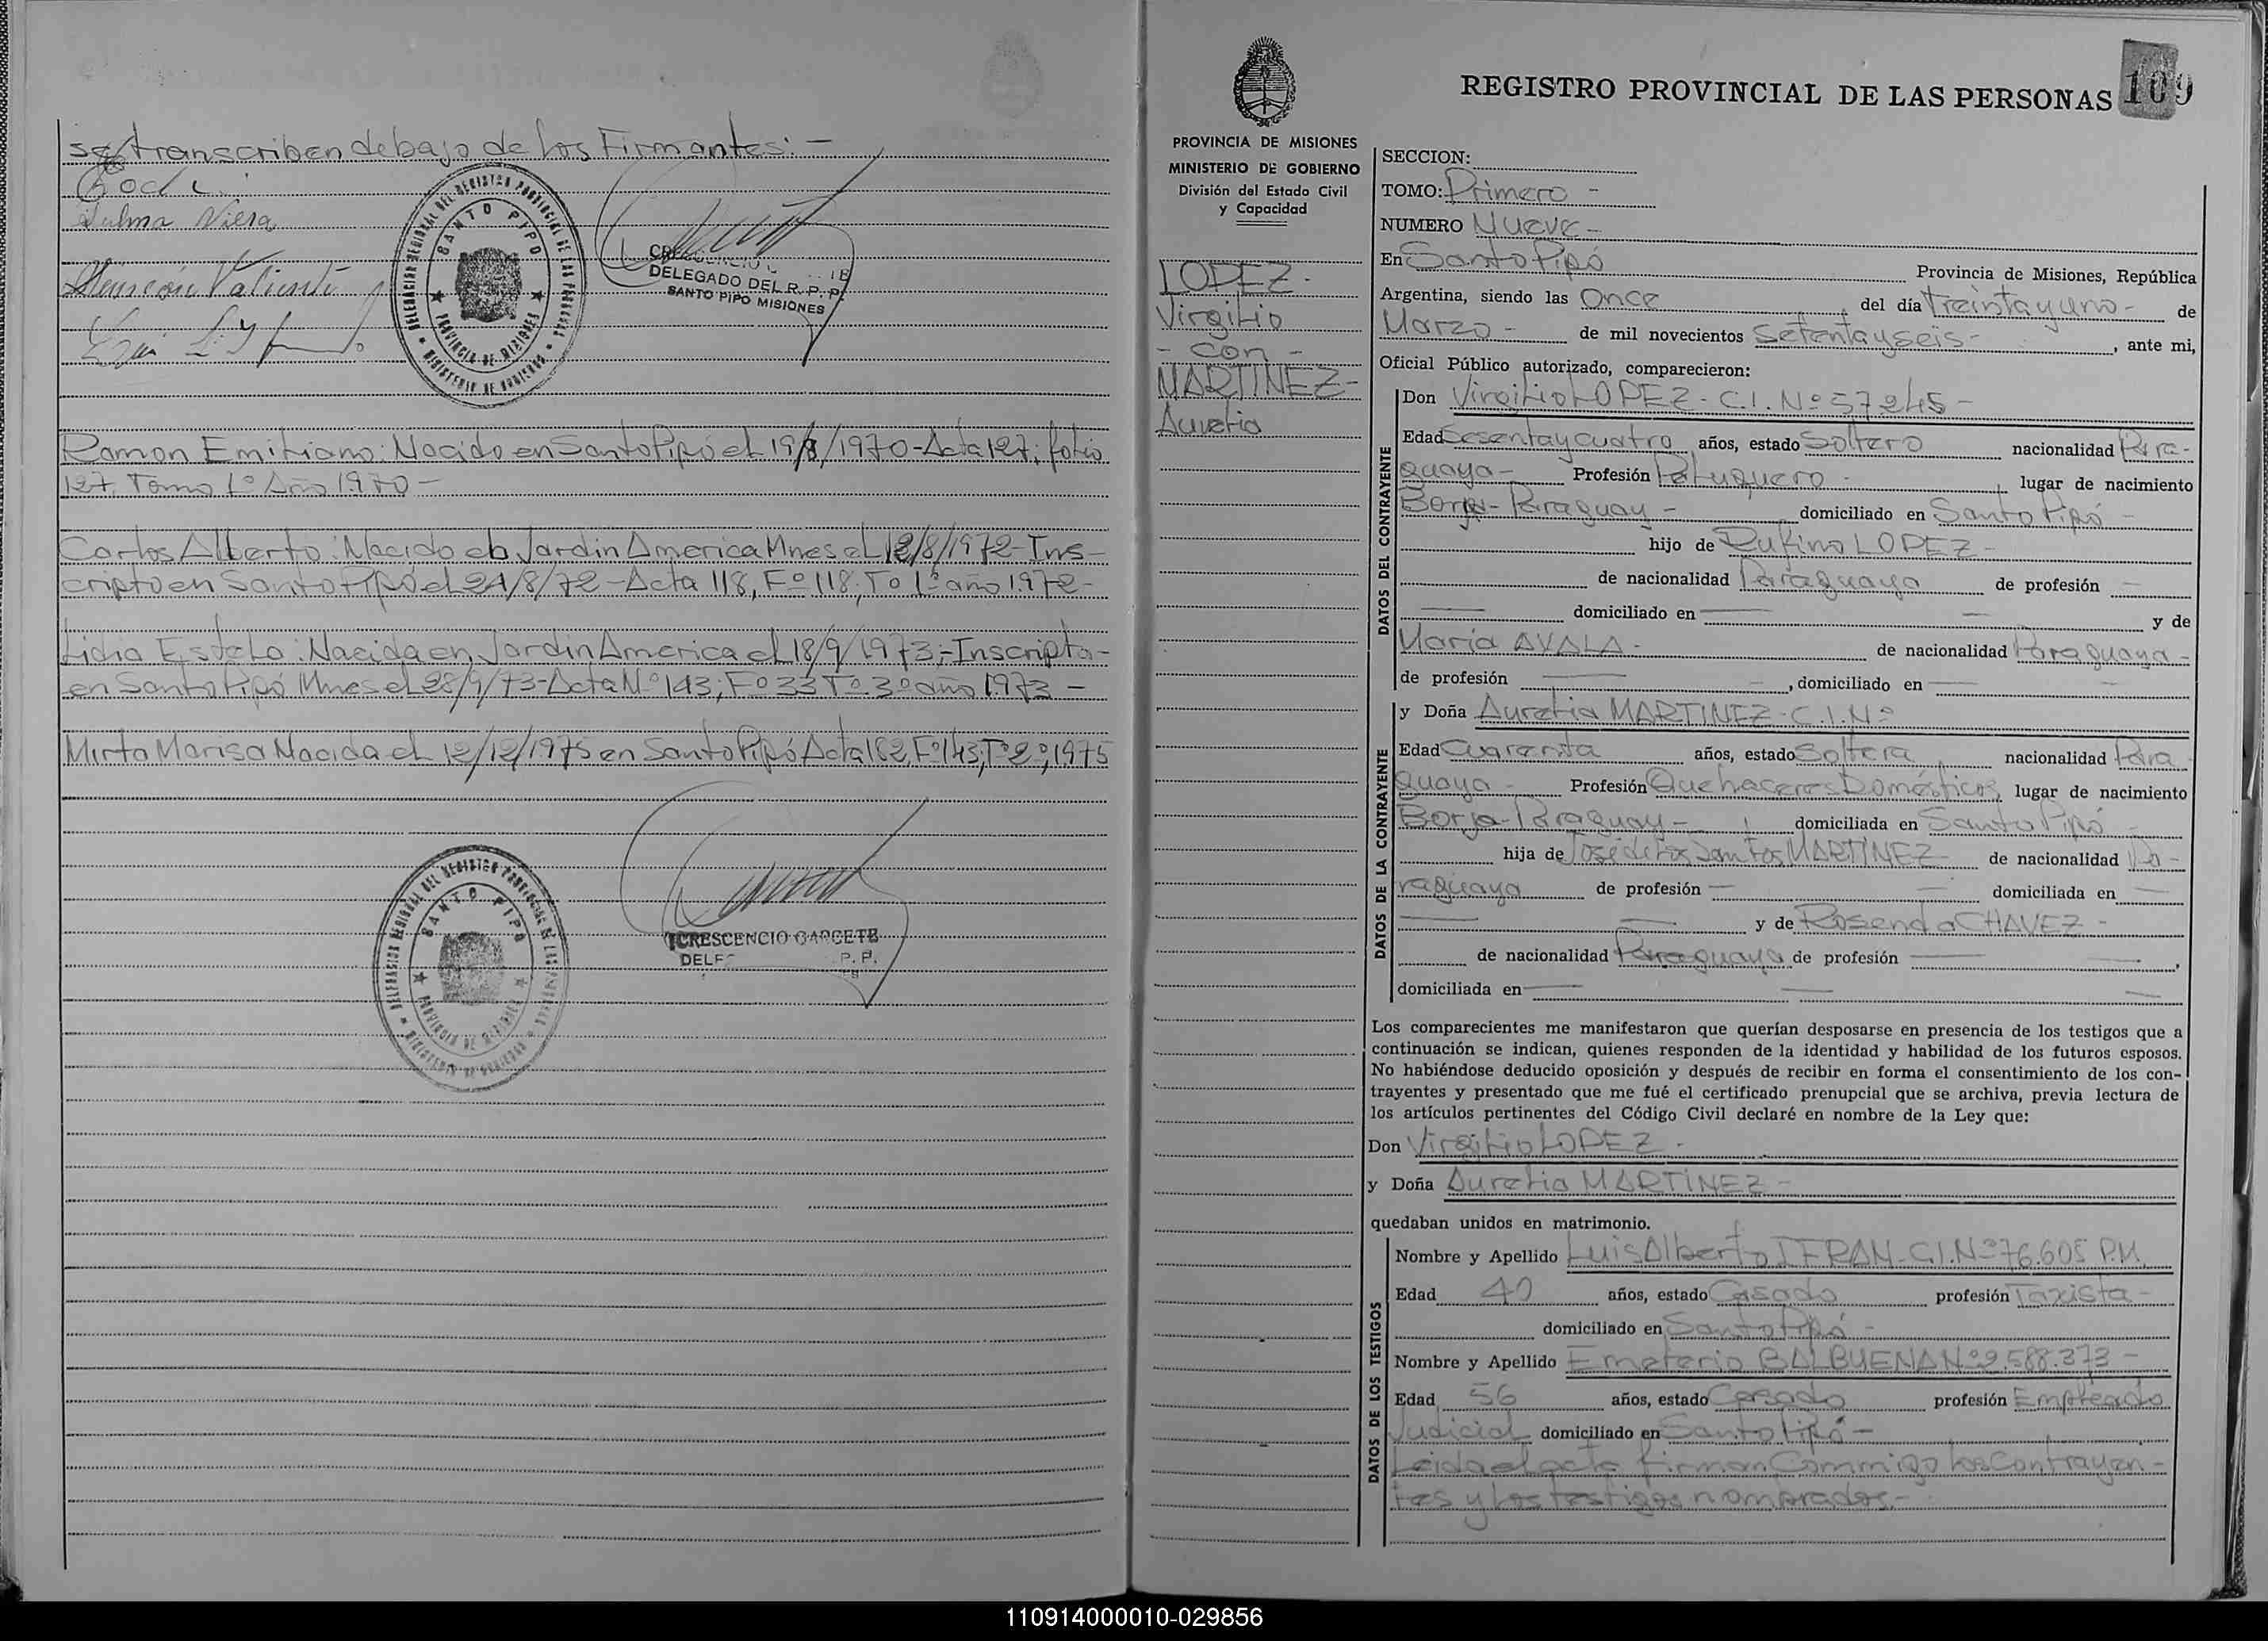 se transcriben debajo de los Firmantes: -
Sulma Viera
Asunción Valiente
DELEGACION REGIONAL DEL REGISTRO PROVINCIAL DE LAS PERSONAS
SANTO PIPO
PROVINCIA DE MISIONES
MINISTERIO DE GOBIERNO
DELEGADO DEL R. P. P.
SANTO PIPO MISIONES
Ramon Emiliano: Nacido en Santo Pipó el 19/8/1970 - Acta 127; folio
127, Tomo 1º Año 1970 -
Carlos Alberto: Nacido eb Jardin America Mnes el 12/8/1972 - Ins-
cripto en Santo Pipó el 21/8/72 - Acta 118, Fº 118, Tº 1º año 1.972 -
Lidia Estela: Nacida en Jardin America el 18/9/1973; - Inscripta -
en Santo Pipó Mnes el 28/9/73 - Acta Nº 143; Fº 33 Tº 3º año 1973 -
Mirta Marisa Nacida el 12/12/1975 en Santo Pipó Acta 182, Fº 143, Tº 2º, 1975
CRESCENCIO GARCETE
P. P.
DELEGACION REGIONAL DEL REGISTRO PROVINCIAL DE LAS PERSONAS
SANTO PIPO
PROVINCIA DE MISIONES
MINISTERIO DE GOBIERNO
REGISTRO PROVINCIAL DE LAS PERSONAS 109
PROVINCIA DE MISIONES
MINISTERIO DE GOBIERNO
División del Estado Civil
y Capacidad
LOPEZ -
Virgilio
- con -
MARTINEZ -
Aurelia
SECCION:
TOMO: Primero -
NUMERO Nueve -
En Santo Pipó Provincia de Misiones, República
Argentina, siendo las Once del día treinta y uno - de
Marzo - de mil novecientos setenta y seis -, ante mi,
Oficial Público autorizado, comparecieron:
DATOS DEL CONTRAYENTE
Don Virgilio LOPEZ - C.I. Nº 57245 -
Edad Sesenta y cuatro años, estado Soltero nacionalidad Para-
guaya - Profesión Peluquero - lugar de nacimiento
Borja - Paraguay - domiciliado en Santo Pipó -
hijo de Rufino LOPEZ -
de nacionalidad Paraguaya de profesión —
— domiciliado en — — y de
Maria AYALA - de nacionalidad Paraguaya -
de profesión — , domiciliado en —
DATOS DE LA CONTRAYENTE
y Doña Aurelia MARTINEZ - C.I. Nº
Edad Cuarenta años, estado Soltera nacionalidad Para
guaya - Profesión Quehaceres Domésticos, lugar de nacimiento
Borja - Paraguay - domiciliada en Santo Pipó -
hija de José de los Santos MARTINEZ - de nacionalidad Pa-
raguaya de profesión — — domiciliada en —
— — y de Rosenda CHAVEZ -
de nacionalidad Paraguaya de profesión — —,
domiciliada en — — —
Los comparecientes me manifestaron que querían desposarse en presencia de los testigos que a
continuación se indican, quienes responden de la identidad y habilidad de los futuros esposos.
No habiéndose deducido oposición y después de recibir en forma el consentimiento de los con-
trayentes y presentado que me fué el certificado prenupcial que se archiva, previa lectura de
los artículos pertinentes del Código Civil declaré en nombre de la Ley que:
Don Virgilio LOPEZ -
y Doña Aurelia MARTINEZ -
quedaban unidos en matrimonio.
DATOS DE LOS TESTIGOS
Nombre y Apellido Luis Alberto IFRAN - C.I. Nº 76.605 P.M.
Edad 40 años, estado Casado profesión Taxista -
domiciliado en Santo Pipó -
Nombre y Apellido Emeterio BALBUENA Nº 9.588.373 -
Edad 56 años, estado Casado profesión Empleado
Judicial domiciliado en Santo Pipó -
Leida el acta firman Commigo los Contrayen-
tes y los testigos nombrados. -
110914000010-029856